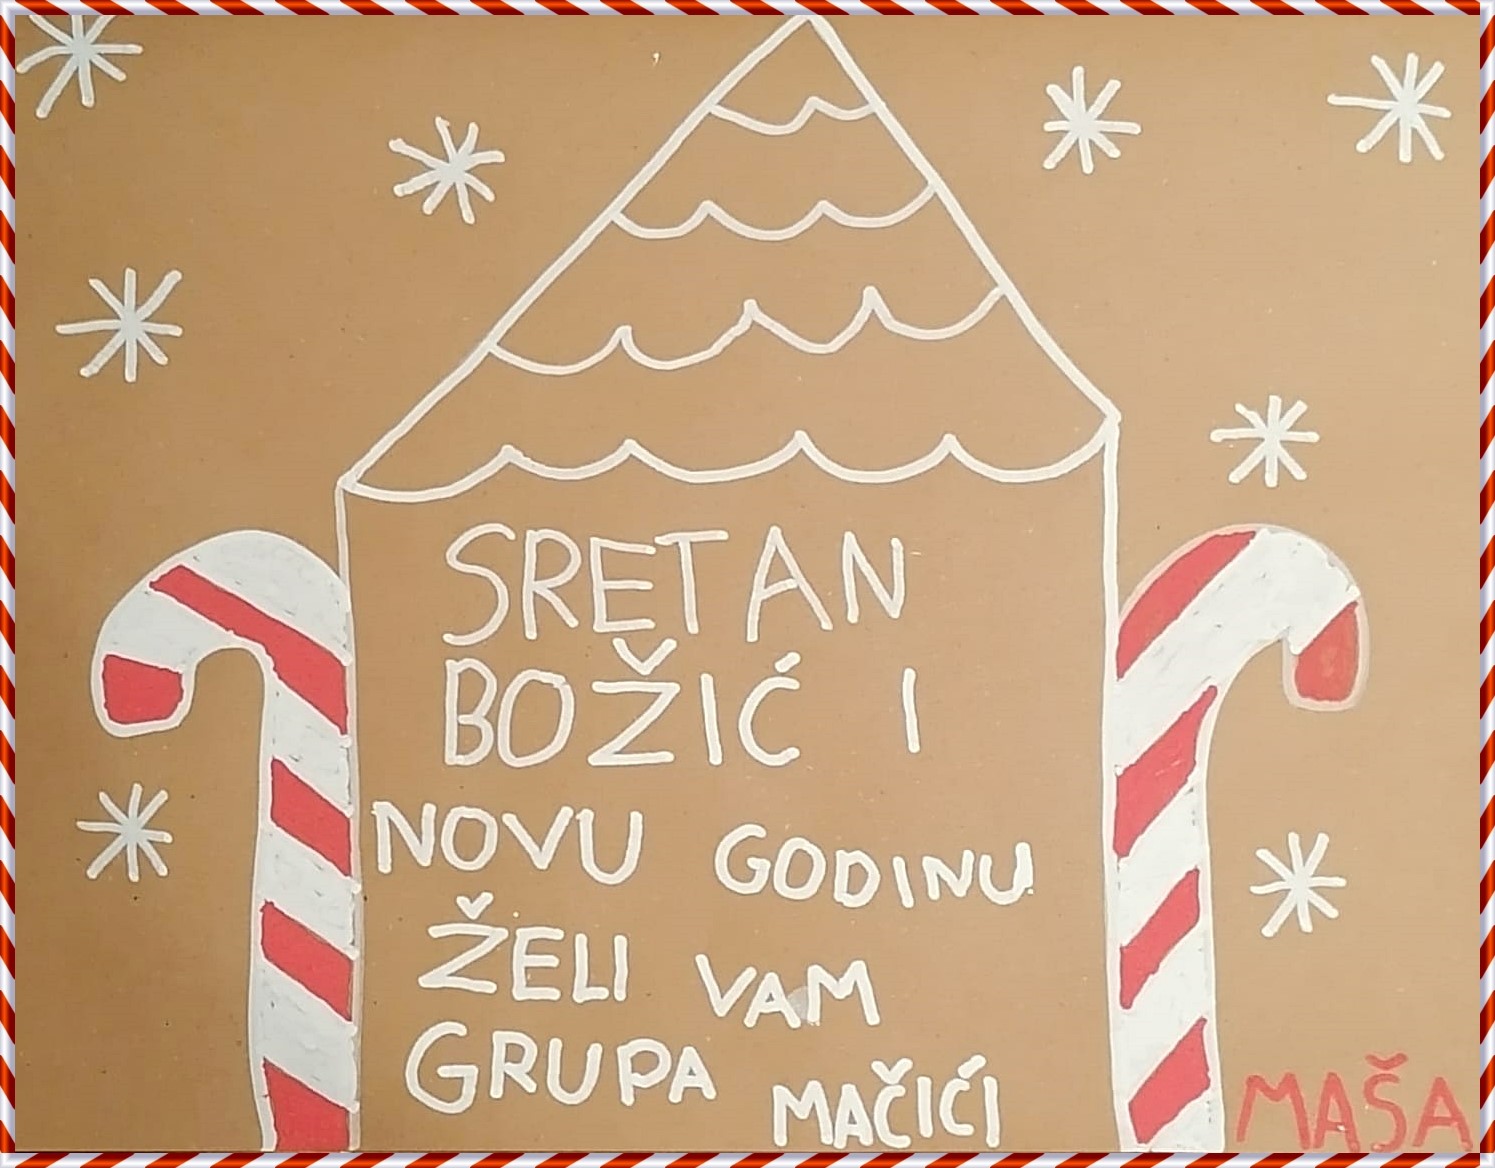 SRETAN
BOŽIĆ I
NOVU GODINU
ŽELI VAM
GRUPA MAČIĆI
MAŠA